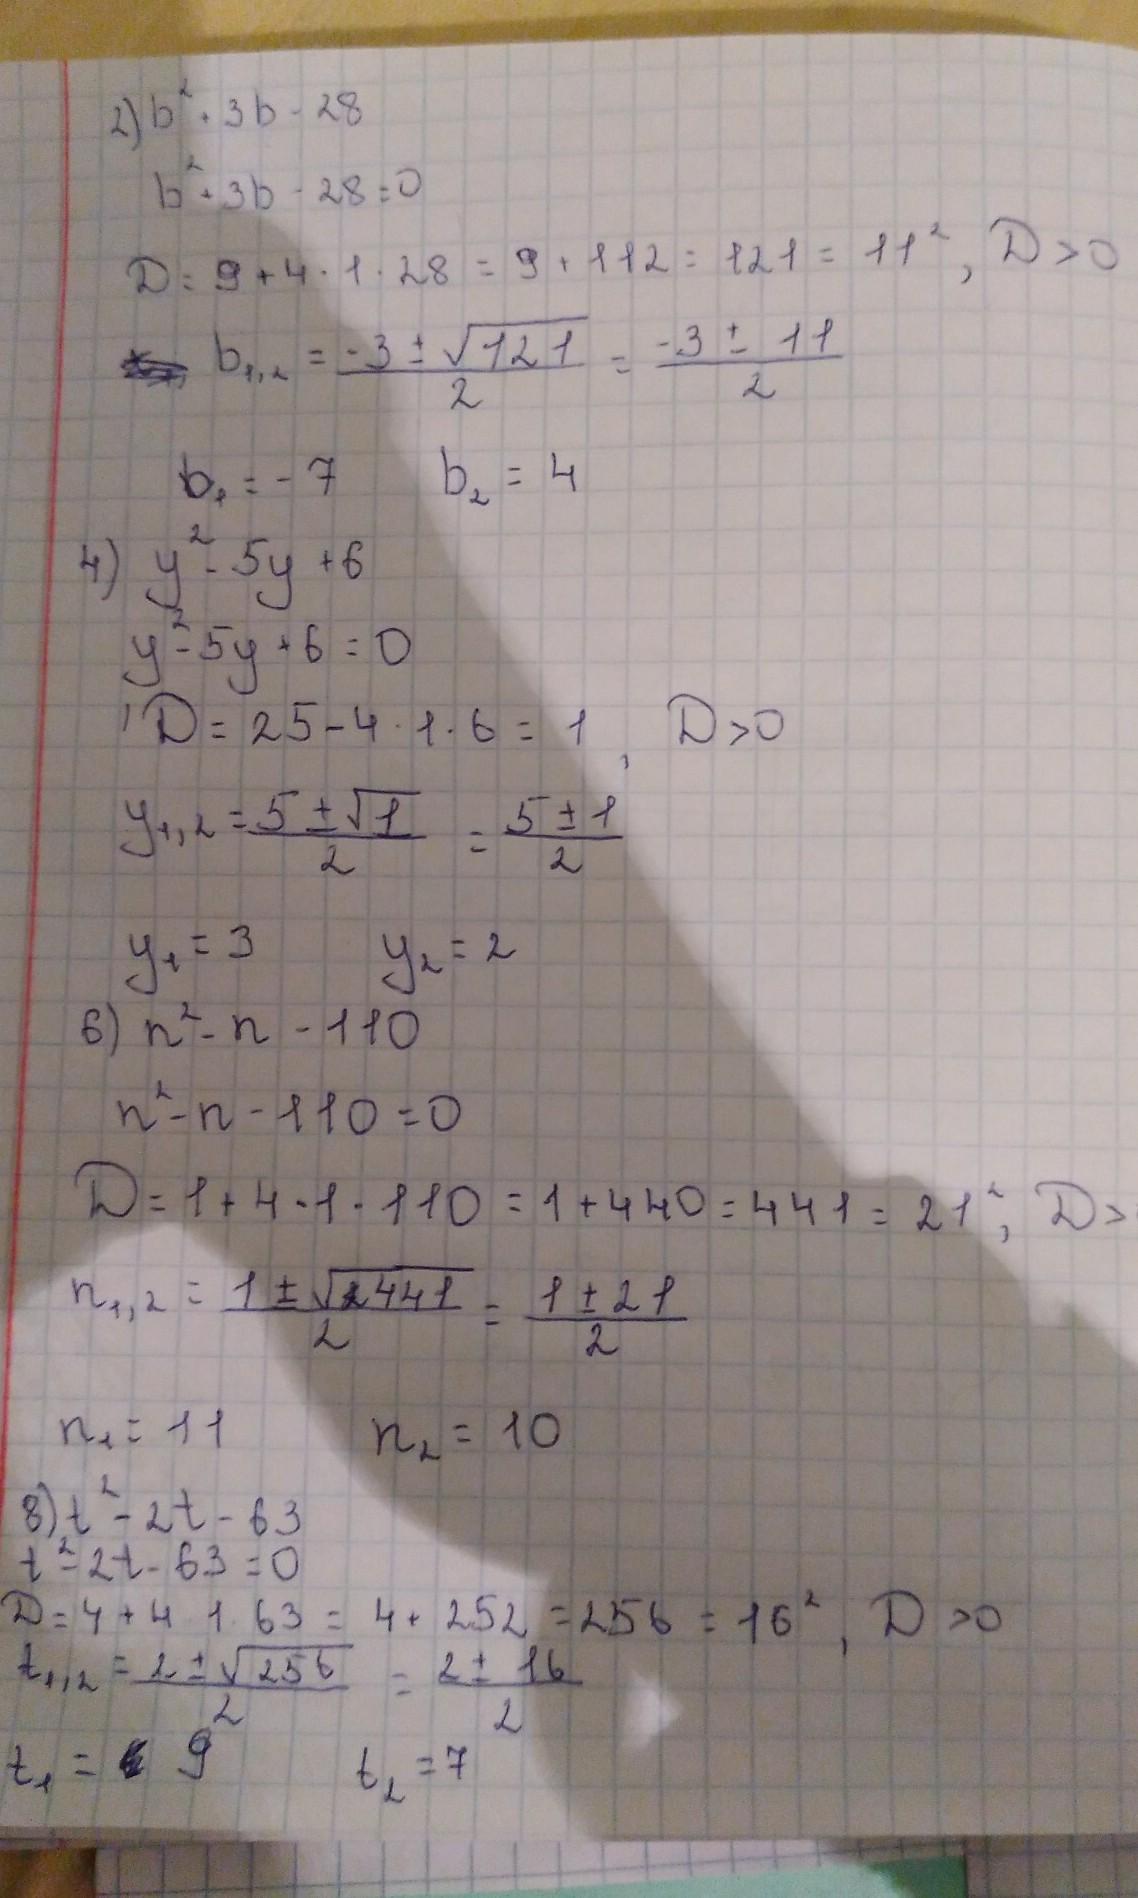 2) b² + 3b - 28
b² + 3b - 28 = 0
D = 9 + 4 · 1 · 28 = 9 + 112 = 121 = 11², D > 0
b₁,₂ = (-3 ± √121)/2 = (-3 ± 11)/2
b₁ = -7 b₂ = 4
4) y² - 5y + 6
y² - 5y + 6 = 0
D = 25 - 4 · 1 · 6 = 1, D > 0
y₁,₂ = (5 ± √1)/2 = (5 ± 1)/2
y₁ = 3 y₂ = 2
6) n² - n - 110
n² - n - 110 = 0
D = 1 + 4 · 1 · 110 = 1 + 440 = 441 = 21², D >
n₁,₂ = (1 ± √441)/2 = (1 ± 21)/2
n₁ = 11 n₂ = 10
8) t² - 2t - 63
t² - 2t - 63 = 0
D = 4 + 4 · 1 · 63 = 4 + 252 = 256 = 16², D > 0
t₁,₂ = (2 ± √256)/2 = (2 ± 16)/2
t₁ = 9 t₂ = 7